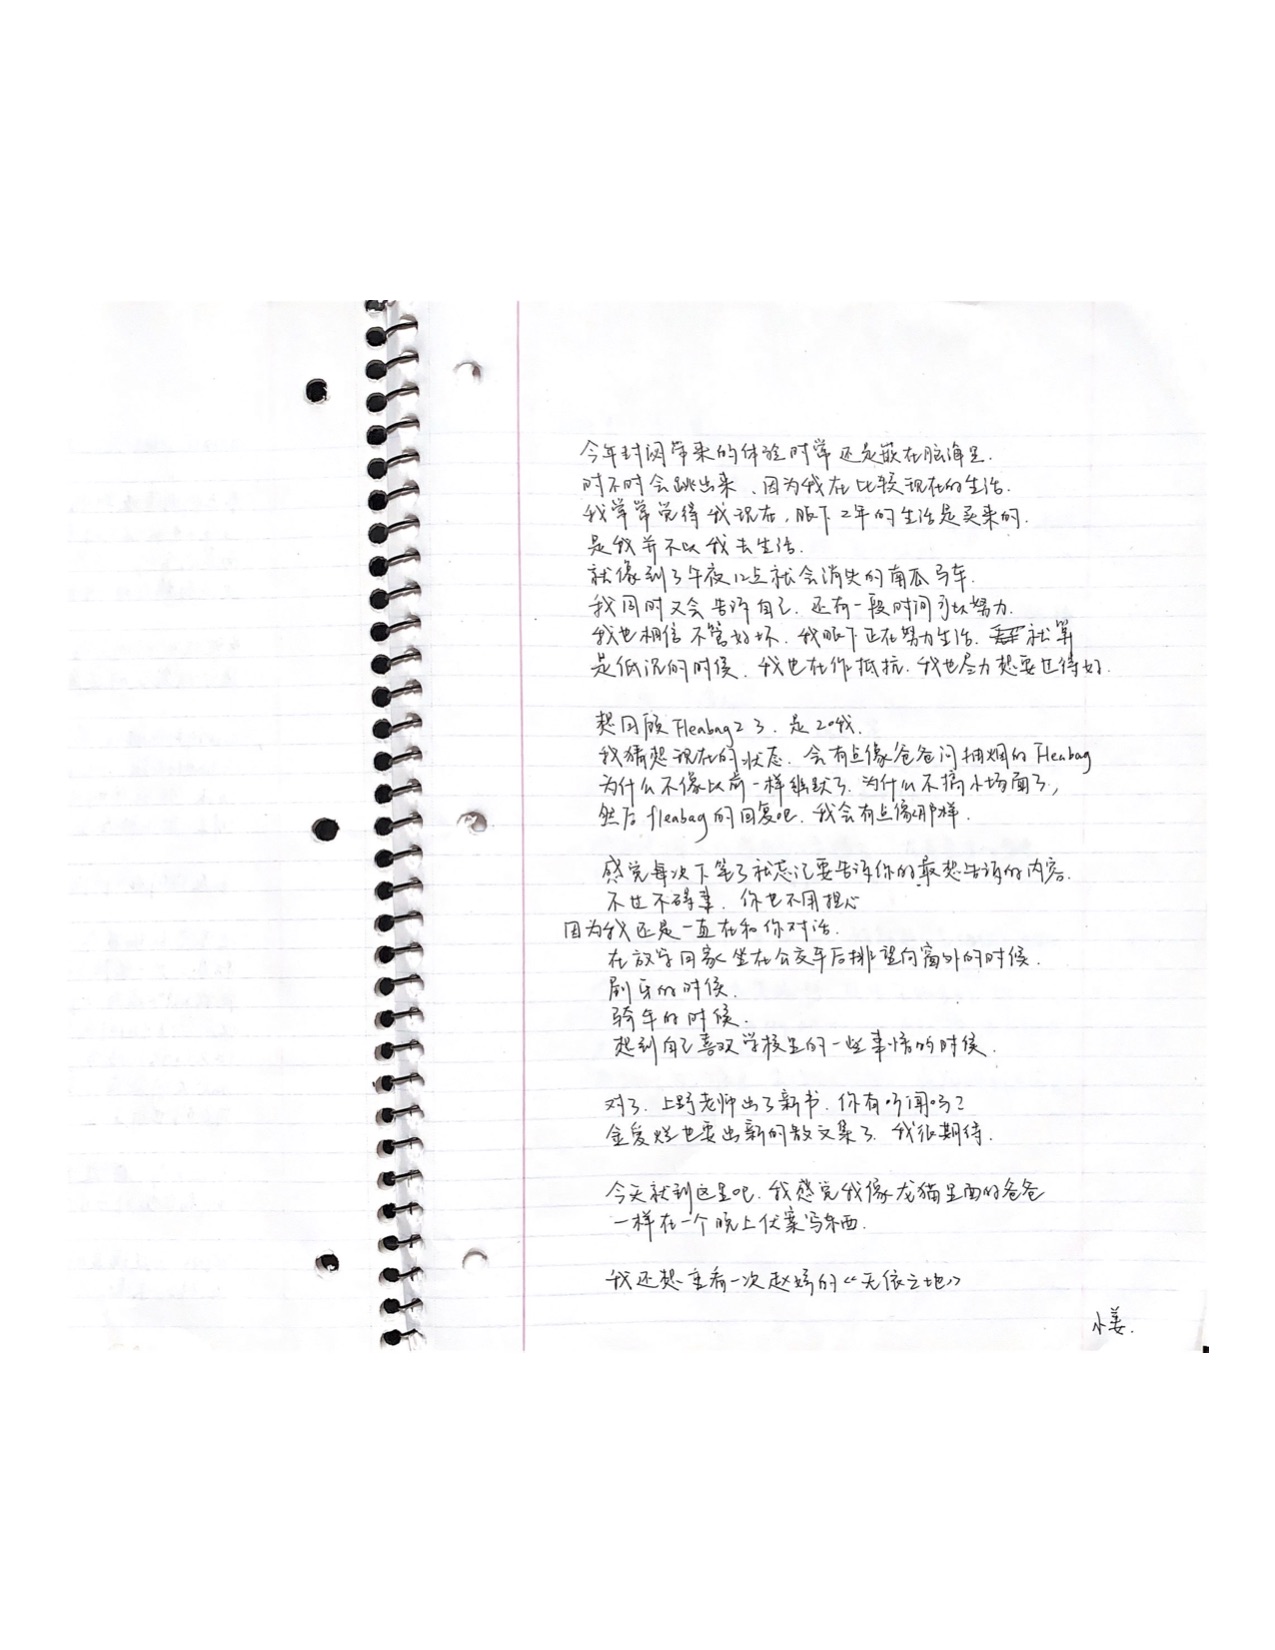 今年封闭带来的体验时常还是嵌在脑海里.
时不时会跳出来、因为我在比较现在的生活.
我常常觉得我现在,眼下2年的生活是买来的.
是我并不以我去生活.
就像到了午夜12点就会消失的南瓜马车.
我同时又会告诉自己.还有一段时间可以努力.
我也相信不管好坏.我眼下正在努力生活. 就算
是低沉的时候.我也在作抵抗.我也尽力想要过得好.
想回顾Fleabag2了.是20
我猜想现在的状态.会有点像爸爸问抽烟的Fleabag
为什么不像以前一样幽默了.为什么不搞小场面了,
然后fleabag的回复吧.我会有点像那样.
感觉每次下笔了就忘记要告诉你的最想告诉的内容.
不过不碍事.你也不用担心
因为我还是一直在和你对话.
在放学回家坐在公交车后排望向窗外的时候.
刷牙的时候.
骑车的时候.
想到自己喜欢学校里的一些事情的时候.
对了.上野老师出了新书.你有听闻吗?
金爱烂也要出新的散文集了.我很期待.
今天就到这里吧.我感觉我像龙猫里面的爸爸
一样在一个晚上伏案写东西.
我还想重看一次赵婷的《无依之地》
小姜.